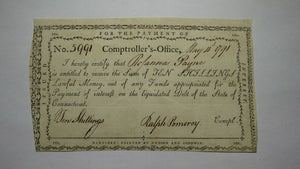 FOR THE PAYMENT OF
No. 5991 Comptroller's-Office, May 11 1791
I hereby certify that Payne
is entitled to receive the Sum of TEN SHILLINGS
Lawful Money, out of any Funds appropriated for the
Payment of interest on the Liquidated Debt of the State of
Connecticut.
Ten Shillings Ralph Pomeroy Compt.
HARTFORD: PRINTED BY HUDSON AND GOODWIN.